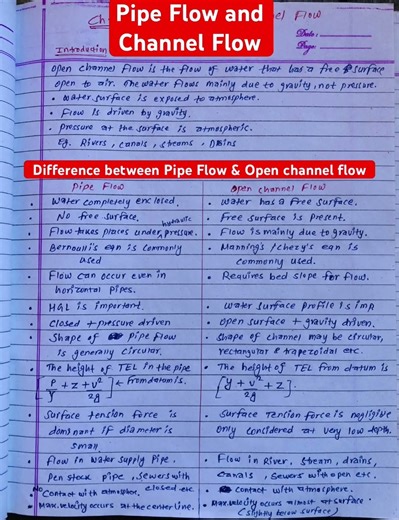 Pipe Flow and
Channel Flow
Flow
Date:
Page:
Introduction
Open channel flow is the flow of water that has a free surface
open to air. The water flows mainly due to gravity, not pressure.
• Water surface is exposed to atmosphere.
• Flow is driven by gravity.
• Pressure at the surface is atmospheric.
Eg. Rivers, canals, streams, Drains
Difference between Pipe Flow & Open channel flow
Pipe Flow
Open channel Flow
• Water completely enclosed.
• Water has a free surface.
• No free surface.
• Free surface is present.
• Flow takes places under hydraulic pressure.
• Flow is mainly due to gravity.
• Bernoulli's eqn is commonly
used
• Manning's/chezy's eqn is
commonly used.
• Flow can occur even in
horizontal pipes.
• Requires bed slope for flow.
• HGL is important.
• Water surface profile is imp
• Closed + pressure driven
• Open surface + gravity driven.
• Shape of pipe flow
is generally circular.
• Shape of channel may be circular,
rectangular & trapezoidal etc.
• The height of TEL in the pipe
[P/γ + z + v²/2g] ← from datum is.
• The height of TEL from datum is
[y + v²/2g + z].
• Surface tension force is
dominant if diameter is
small
• Surface tension force is negligive
only considered at very low depth.
• Flow in water supply pipe.
Pen stock pipe, sewers with
closed etc.
• Flow in River, stream, drains,
canals, sewers with open etc.
• No contact with atmosphere.
• Contact with atmosphere.
• Max. velocity occurs at the center line.
• Max. velocity occurs almost at surface.
(slightly below surface)